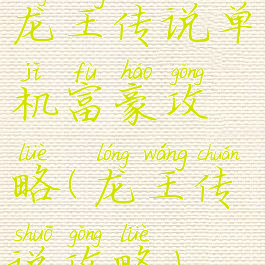 龙王传说单
jī fù háo gōng
机富豪攻
lüè lóng wáng chuán
略(龙王传
shuō gōng lüè
说攻略)